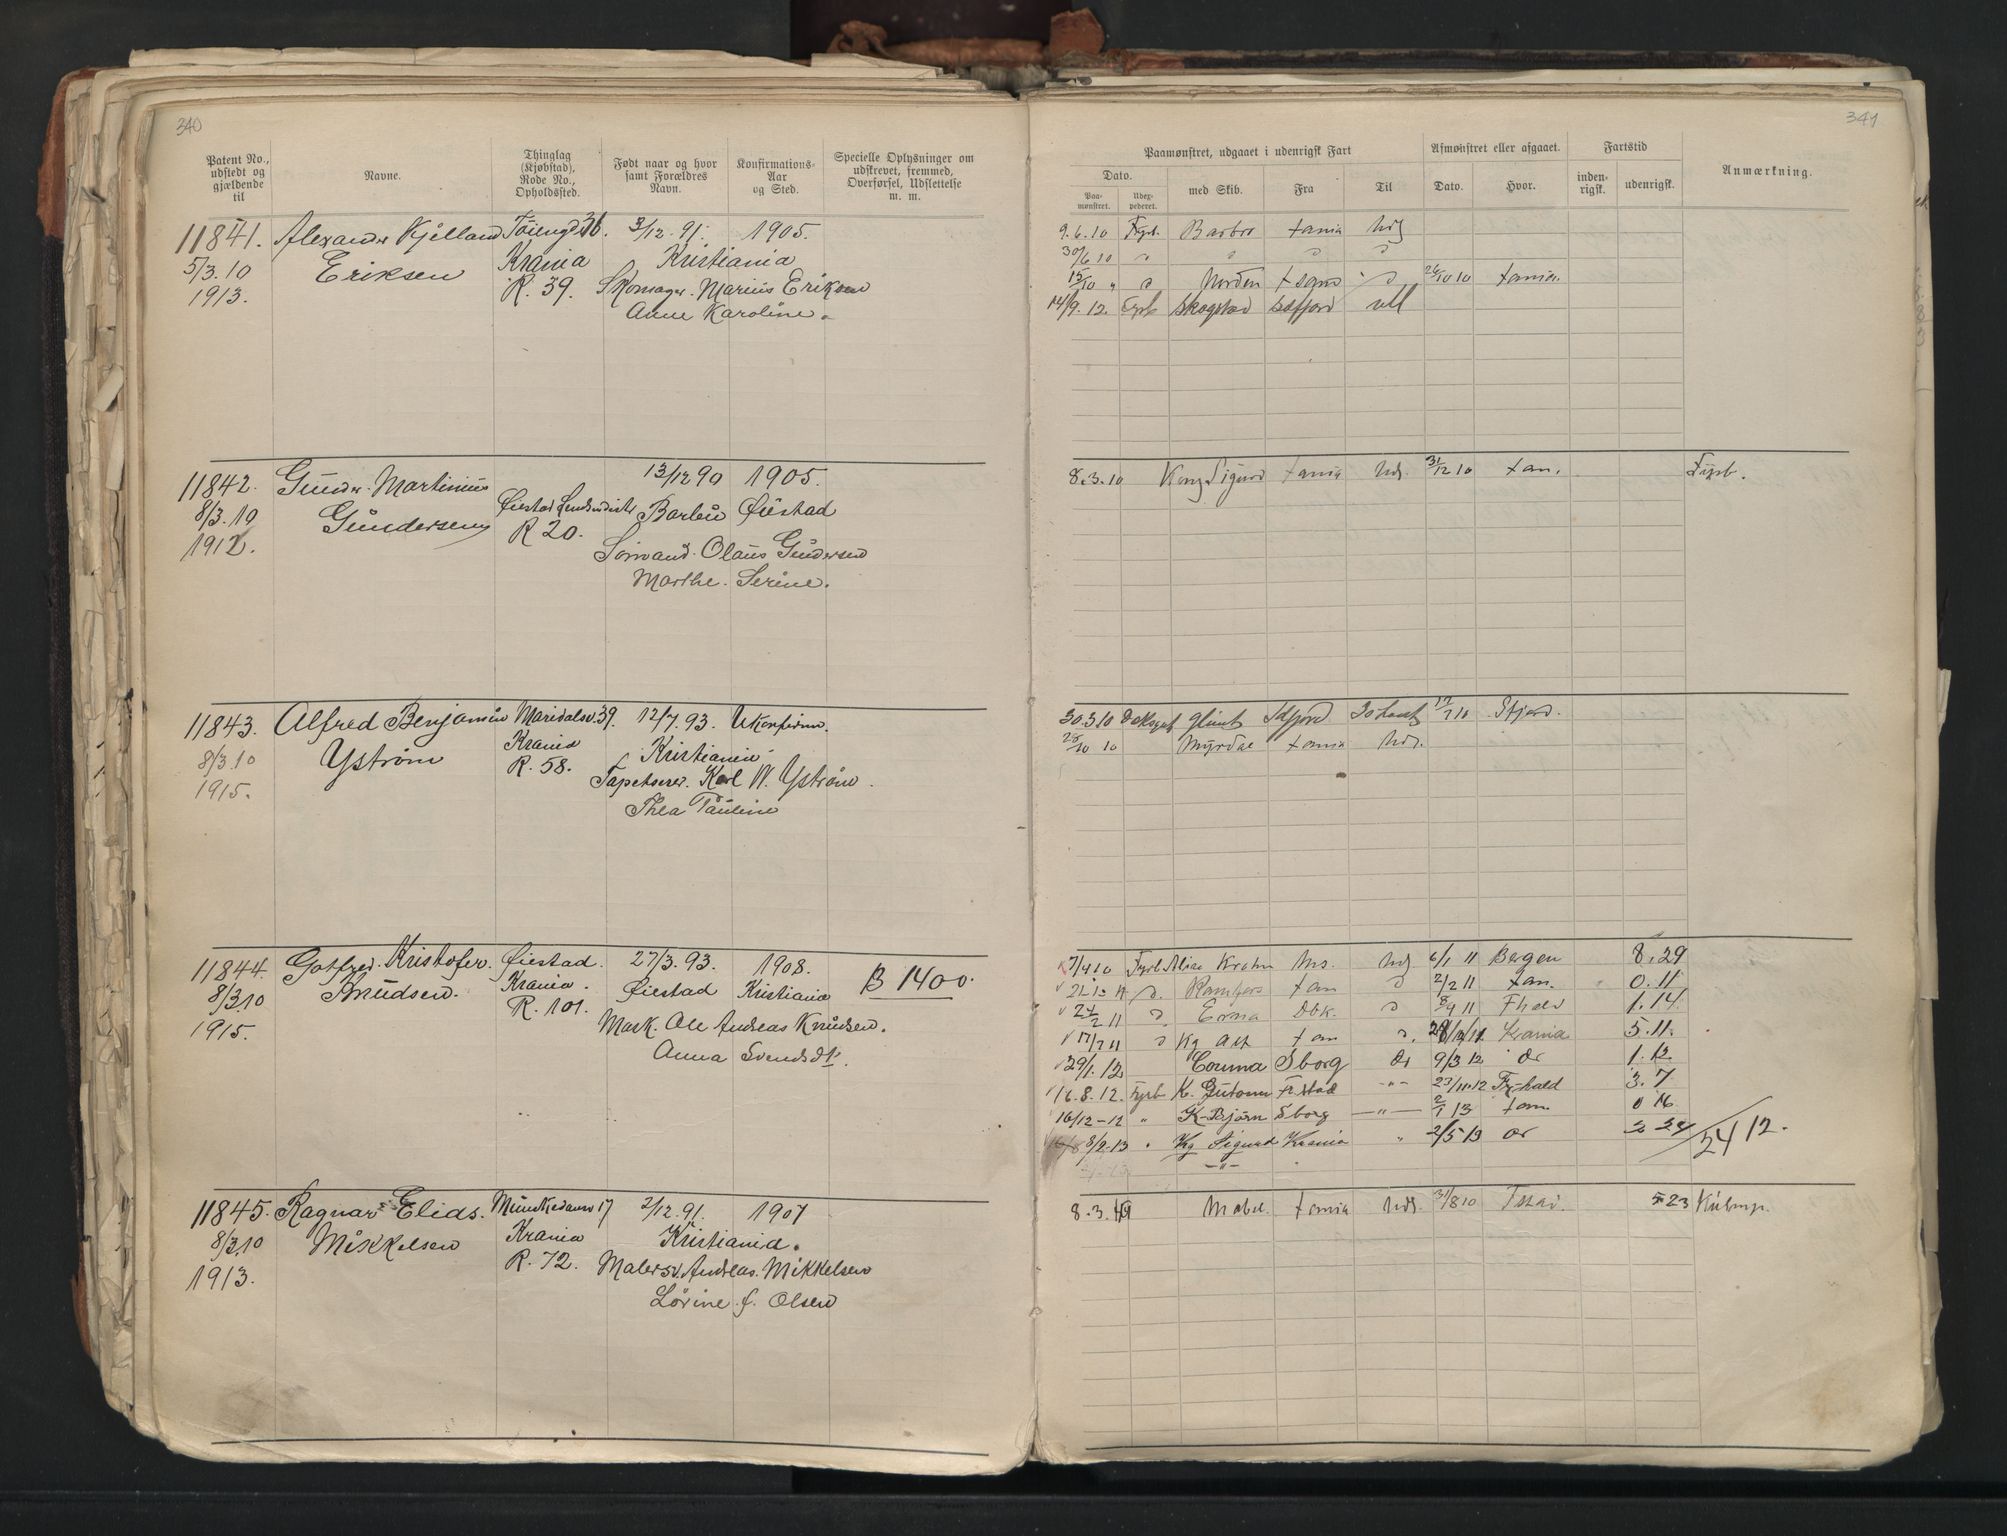 340
Patent No., udstedt og gjældende til
Navne.
Thinglag (Kjøbstad), Rode No., Opholdssted.
Født naar og hvor samt Forældres Navn.
Konfirmations- Aar og Sted.
Specielle Oplysninger om udskrevet, fremmed, Overførsel, Udslettelse m. m.
11841. Alexander Kjelland Töiengd 36. 3/12. 91. 1905.
5/3.10 Eriksen Krania Kristiania
1913. R. 39. Skomager Marius Eriksen
Anne Karoline.
11842. Gunder Martinius 13/12 90 1905.
8/3.10 Gundersen Øiestad Barbu Øiestad
1912. R 20. Olaus Gundersen
Marthe Serine.
11843. Alfred Benjamin Maridalsv. 39. 12/7. 93. Ukonfirm.
8/3.10 Yström Krania Kristiania
1915. R. 58. Tapetserer Karl W. Yström.
Thea Pauline
11844. Gotfred Kristofer Øiestad. 27/3. 93. 1908. B 1400.
8/3.10 Knudsen. Krania. Øiestad Kristiania
1915. R. 101. Mask. Ole Andreas Knudsen.
Anna Svendsdt.
11845. Ragnar Elias. Munkedamsv 17 2/12. 91. 1907
8/3.10 Mikkelsen Krania Kristiania.
1913. R. 72. Malersv. Andreas Mikkelsen
Lovine f. Olsen
341
Paamønstret, udgaaet i udenrigsk Fart
Afmønstret eller afgaaet.
Fartstid
Anmærkning.
Dato.
Paa- mønstret.
Udex- pederet.
med Skib.
Fra
Til
Dato.
Hvor.
inden- rigsk.
udenrigsk.
9.6.10 Fyrb. Barbro tania Uds
30/6 10 " " " "
15/10 " " Norden " 26/10 10 tania
14/9. 12. Fyrb Skogstad
8.3.10 Kong Sigurd tania Uds. 31/12 10 tan. Fyrb.
30.3.10 Glimt
28/10 10 Myrdal tania Uds.
7/4 10 Fyrb Alice Krohn Uds 6/1 11 Bergen 8.29
tan 2/2 11 tan. 0.11
24/2 11 Erna 8/4 11 1.14
17/7 11 Kg Alf tan Krania 5.11.
29/1.12 Sborg 9/3 12 1.12
16.8.12. Fyrb K. Guttorm 23/11.12 3.7
16/12-12 " K. Bjørn Sborg —"— 2/1 13 tan. 0 16
8/2.13 " Kg Sigurd Krania " 2/5 13 2 24 / 24 12.
—"—
8.3.10 Mabel tania Uds. 31/8 10 5 23